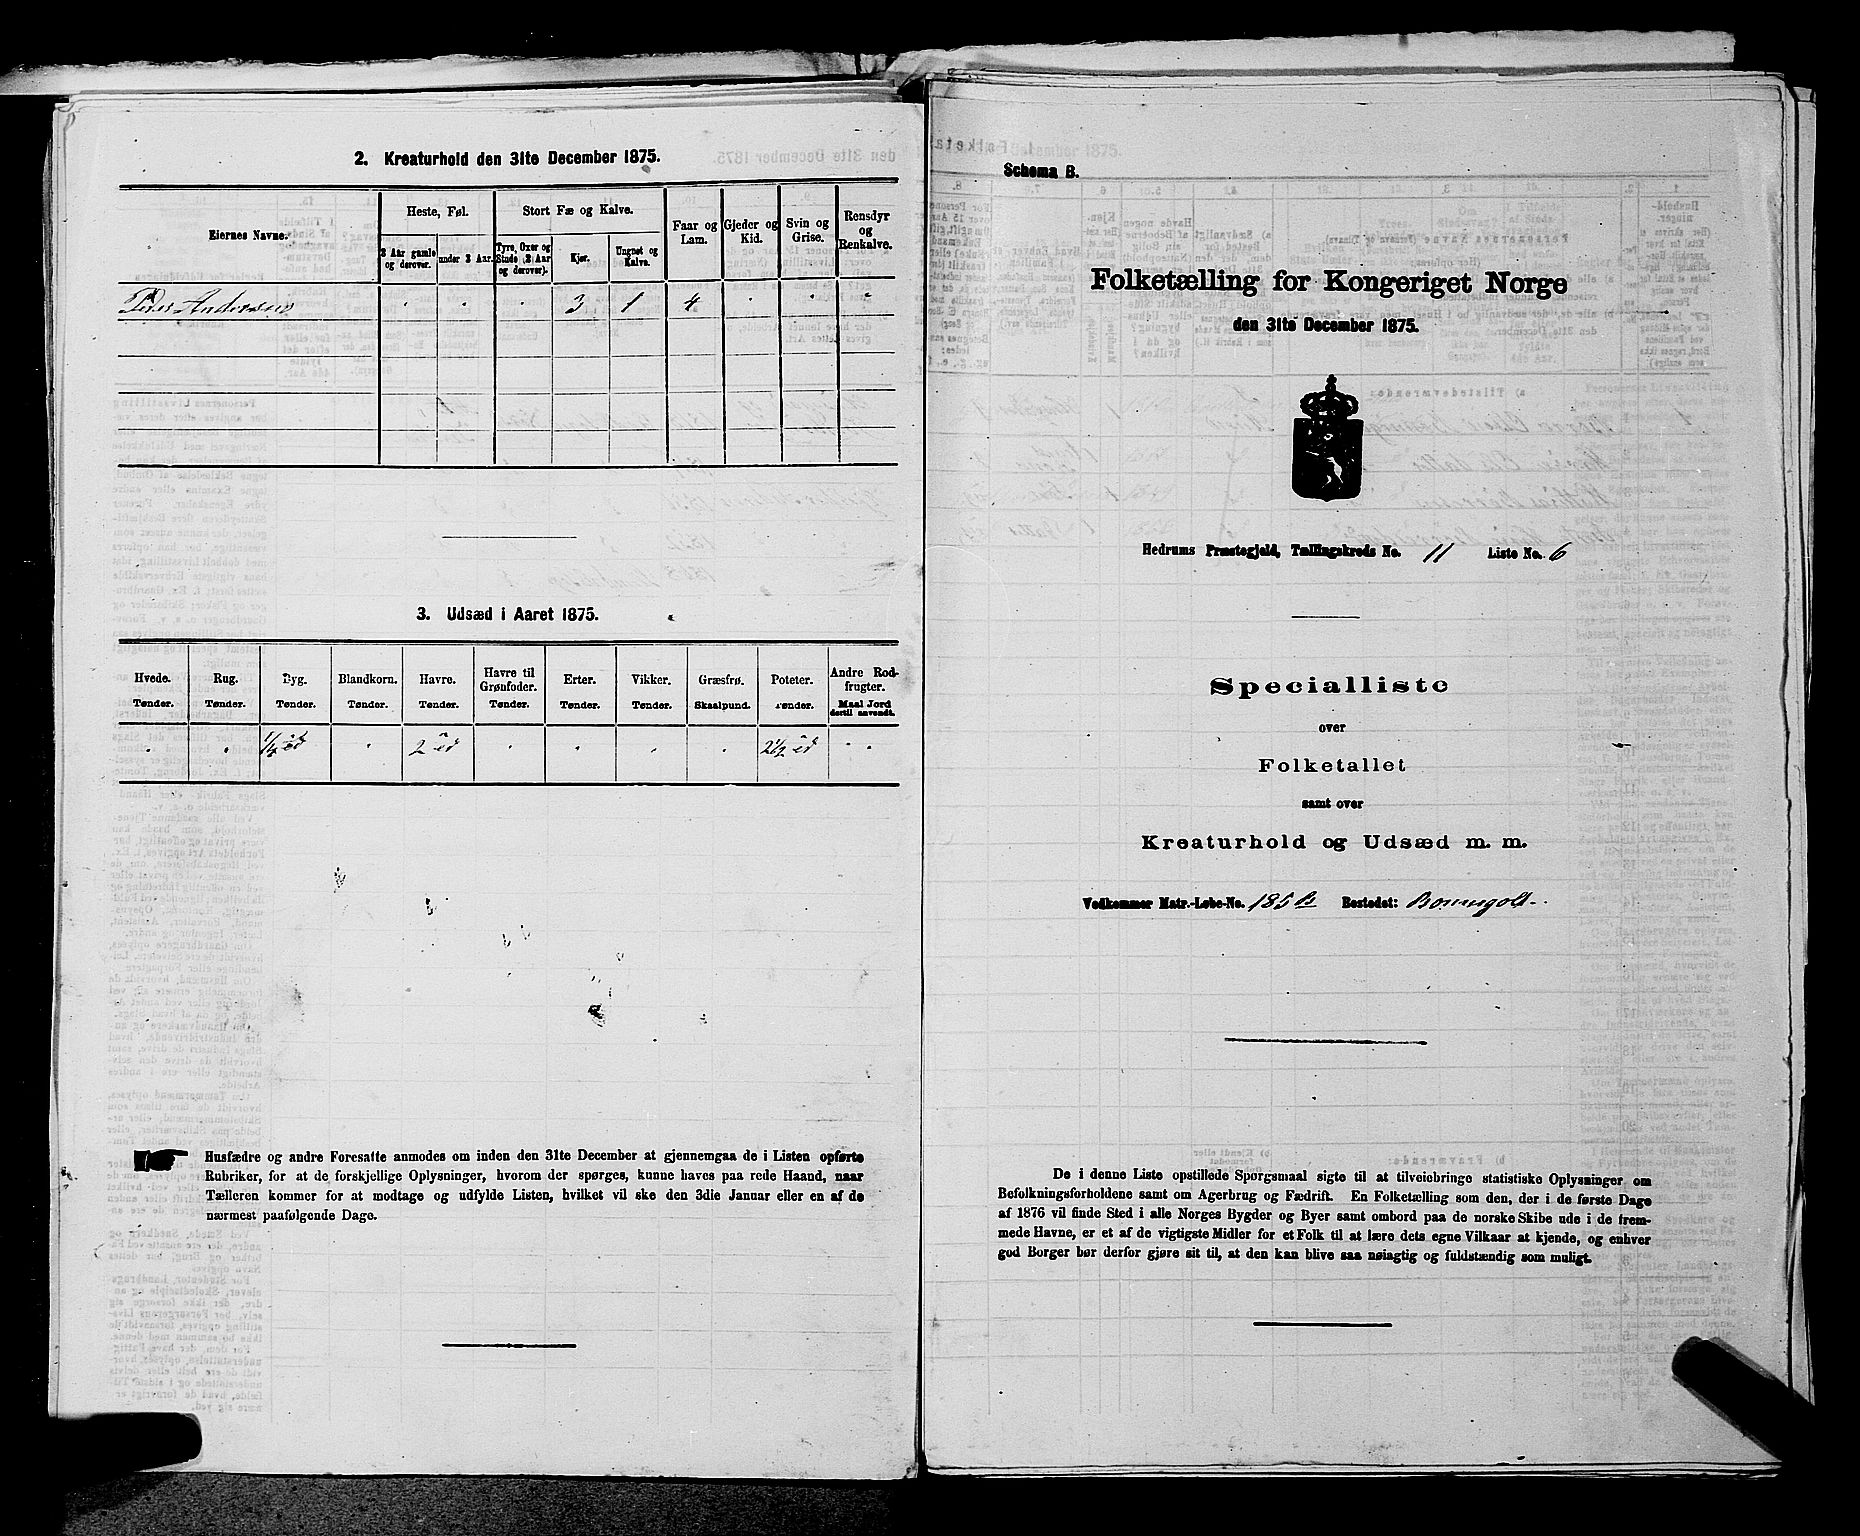 2. Kreaturhold den 31te December 1875.
Eiernes Navne.
Heste, Føl.
Stort Fæ og Kalve.
Faar og Lam.
Gjeder og Kid.
Svin og Grise.
Rensdyr og Renkalve.
3 Aar gamle og derover.
under 3 Aar.
Tyre, Oxer og Stude (2 Aar og derover).
Kjør.
Ungnøt og Kalve.
Peder Andersen " " " 3 1 4 " " "
3. Udsæd i Aaret 1875.
Hvede. Rug. Byg. Blandkorn. Havre. Havre til Grønfoder. Erter. Vikker. Græsfrø. Poteter. Andre Rodfrugter.
Tønder. Tønder. Tønder. Tønder. Tønder. Tønder. Tønder. Tønder. Skaalpund. Tønder. Maal Jord dertil anvendt.
" " " 2 " " " " 2 1/2 " "
Husfædre og andre Foresatte anmodes om inden den 31te December at gjennemgaa de i Listen opførte
Rubriker, for at de forskjellige Oplysninger, hvorom der spørges, kunne haves paa rede Haand, naar
Tælleren kommer for at modtage og udfylde Listen, hvilket vil ske den 3die Januar eller en af de
nærmest paafølgende Dage.
Schema B.
Folketælling for Kongeriget Norge
den 31te December 1875.
Hedrums Præstegjeld, Tællingskreds No. 11 Liste No. 6
Specialliste
over
Folketallet
samt over
Kreaturhold og Udsæd m. m.
Vedkommer Matr.-Løbe-No. 185 B Bostedet:
De i denne Liste opstillede Spørgsmaal sigte til at tilveiebringe statistiske Oplysninger om
Befolkningsforholdene samt om Agerbrug og Fædrift. En Folketælling som den, der i de første Dage
af 1876 vil finde Sted i alle Norges Bygder og Byer samt ombord paa de norske Skibe ude i de frem-
mede Havne, er et af de vigtigste Midler for et Folk til at lære dets egne Vilkaar at kjende, og enhver
god Borger bør derfor gjøre sit til, at den kan blive saa nøiagtig og fuldstændig som muligt.